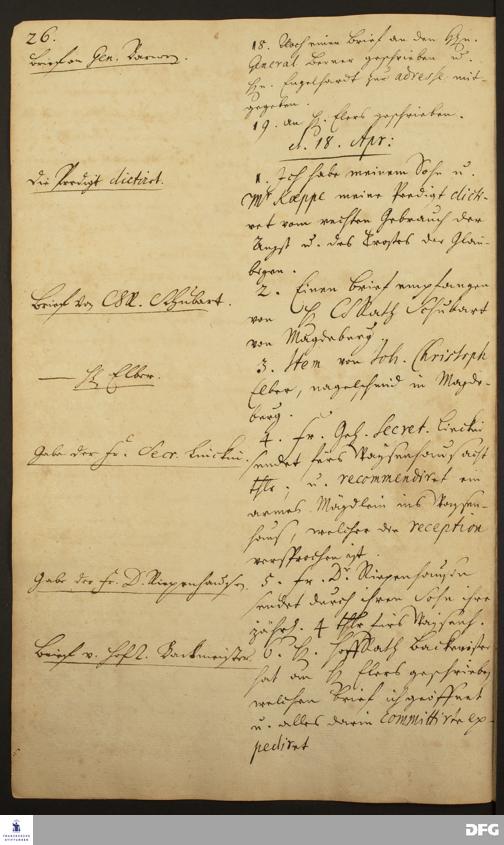 26.
Brief an Gen.
18. Noch einen Brief an den Hn.
General Berner geschrieben u.
Hn. Engelhardt zur adresse mit-
gegeben.
19. an H. Elers geschrieben.
d. 18. Apr:
Die Predigt dictirt.
1. Ich habe meinem Sohn u.
Mr Köppe meine Predigt dicti-
ret vom rechten Gebrauch der
Angst u. des Trostes der Gläu-
bigen.
Brief von CR. Schubart.
2. Einen Brief empfangen
von H. Rath Schubart
von Magdeburg.
— H. Elber.
3. Item von Joh. Christoph
Elber, nagelschmid in Magde-
burg.
Gabe der Fr. Secr. Linckin.
4. Fr. Geh. Secret. Linckin
sendet fürs Waysenhaus acht
thlr, u. recommendiret ein
armes Mägdlein ins Waysen-
haus, welcher die reception
versprochen ist.
Gabe der Fr. D. Riepenhausen.
5. Fr. Dr. Riepenhausin
sendet durch ihren Sohn ihre
jährl. 4 thlr fürs Waisenh.
Brief v. Hofr. Backmeister.
6. H. Hoffrath Backmeister
hat an H. Elers geschrieben
welchen Brief ich geöffnet
u. alles darin committirte ex-
pediret
FRANCKESCHE
STIFTUNGEN
DFG